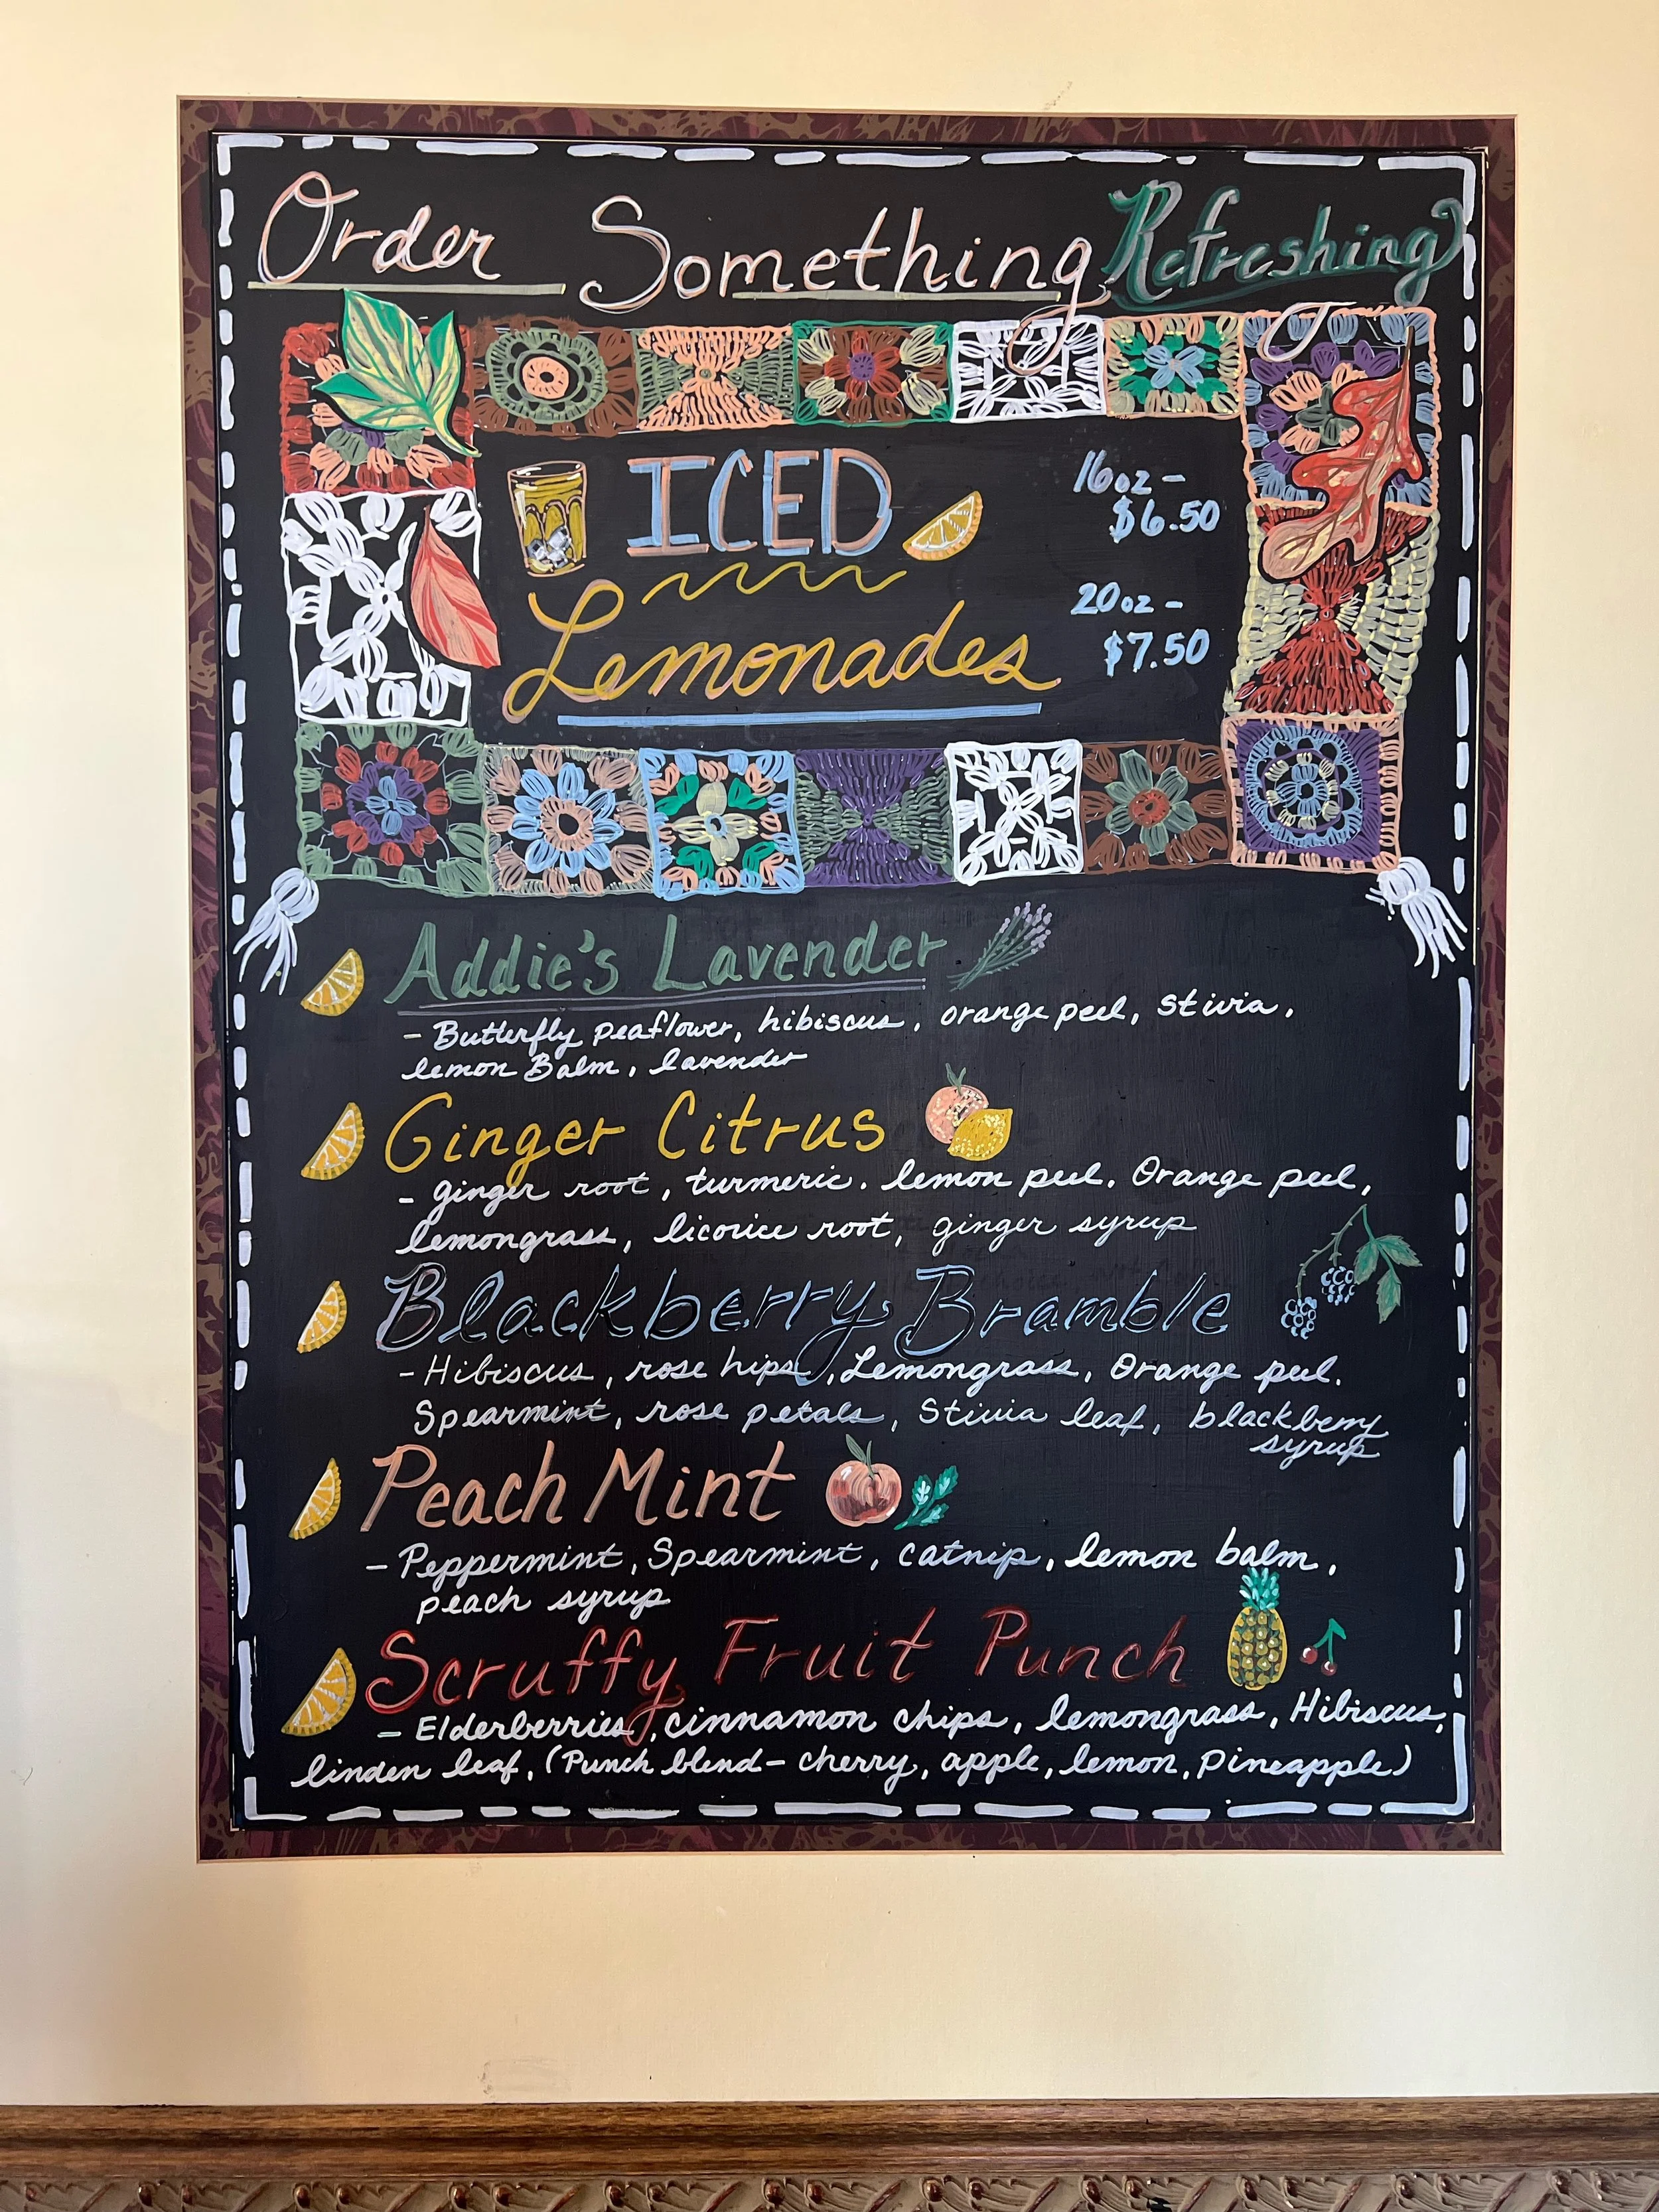 Order Something Refreshing
ICED
Lemonades
16oz -
$6.50
20oz -
$7.50
Addie's Lavender
- Butterfly peaflower, hibiscus, orange peel, stivia,
lemon Balm, lavender
Ginger Citrus
- ginger root, turmeric. lemon peel. Orange peel,
lemongrass, licorice root, ginger syrup
Blackberry Bramble
- Hibiscus, rose hips, Lemongrass, Orange peel.
Spearmint, rose petals, Stivia leaf, blackberry
syrup
Peach Mint
- Peppermint, Spearmint, catnip, lemon balm,
peach syrup
Scruffy Fruit Punch
- Elderberries, cinnamon chips, lemongrass, Hibiscus,
linden leaf, (Punch blend - cherry, apple, lemon, pineapple)